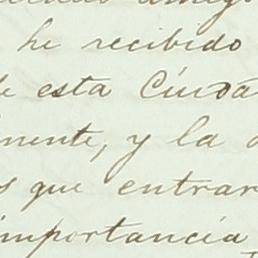 he recibido
esta Ciuda
nente, y la
que entrar
importancia